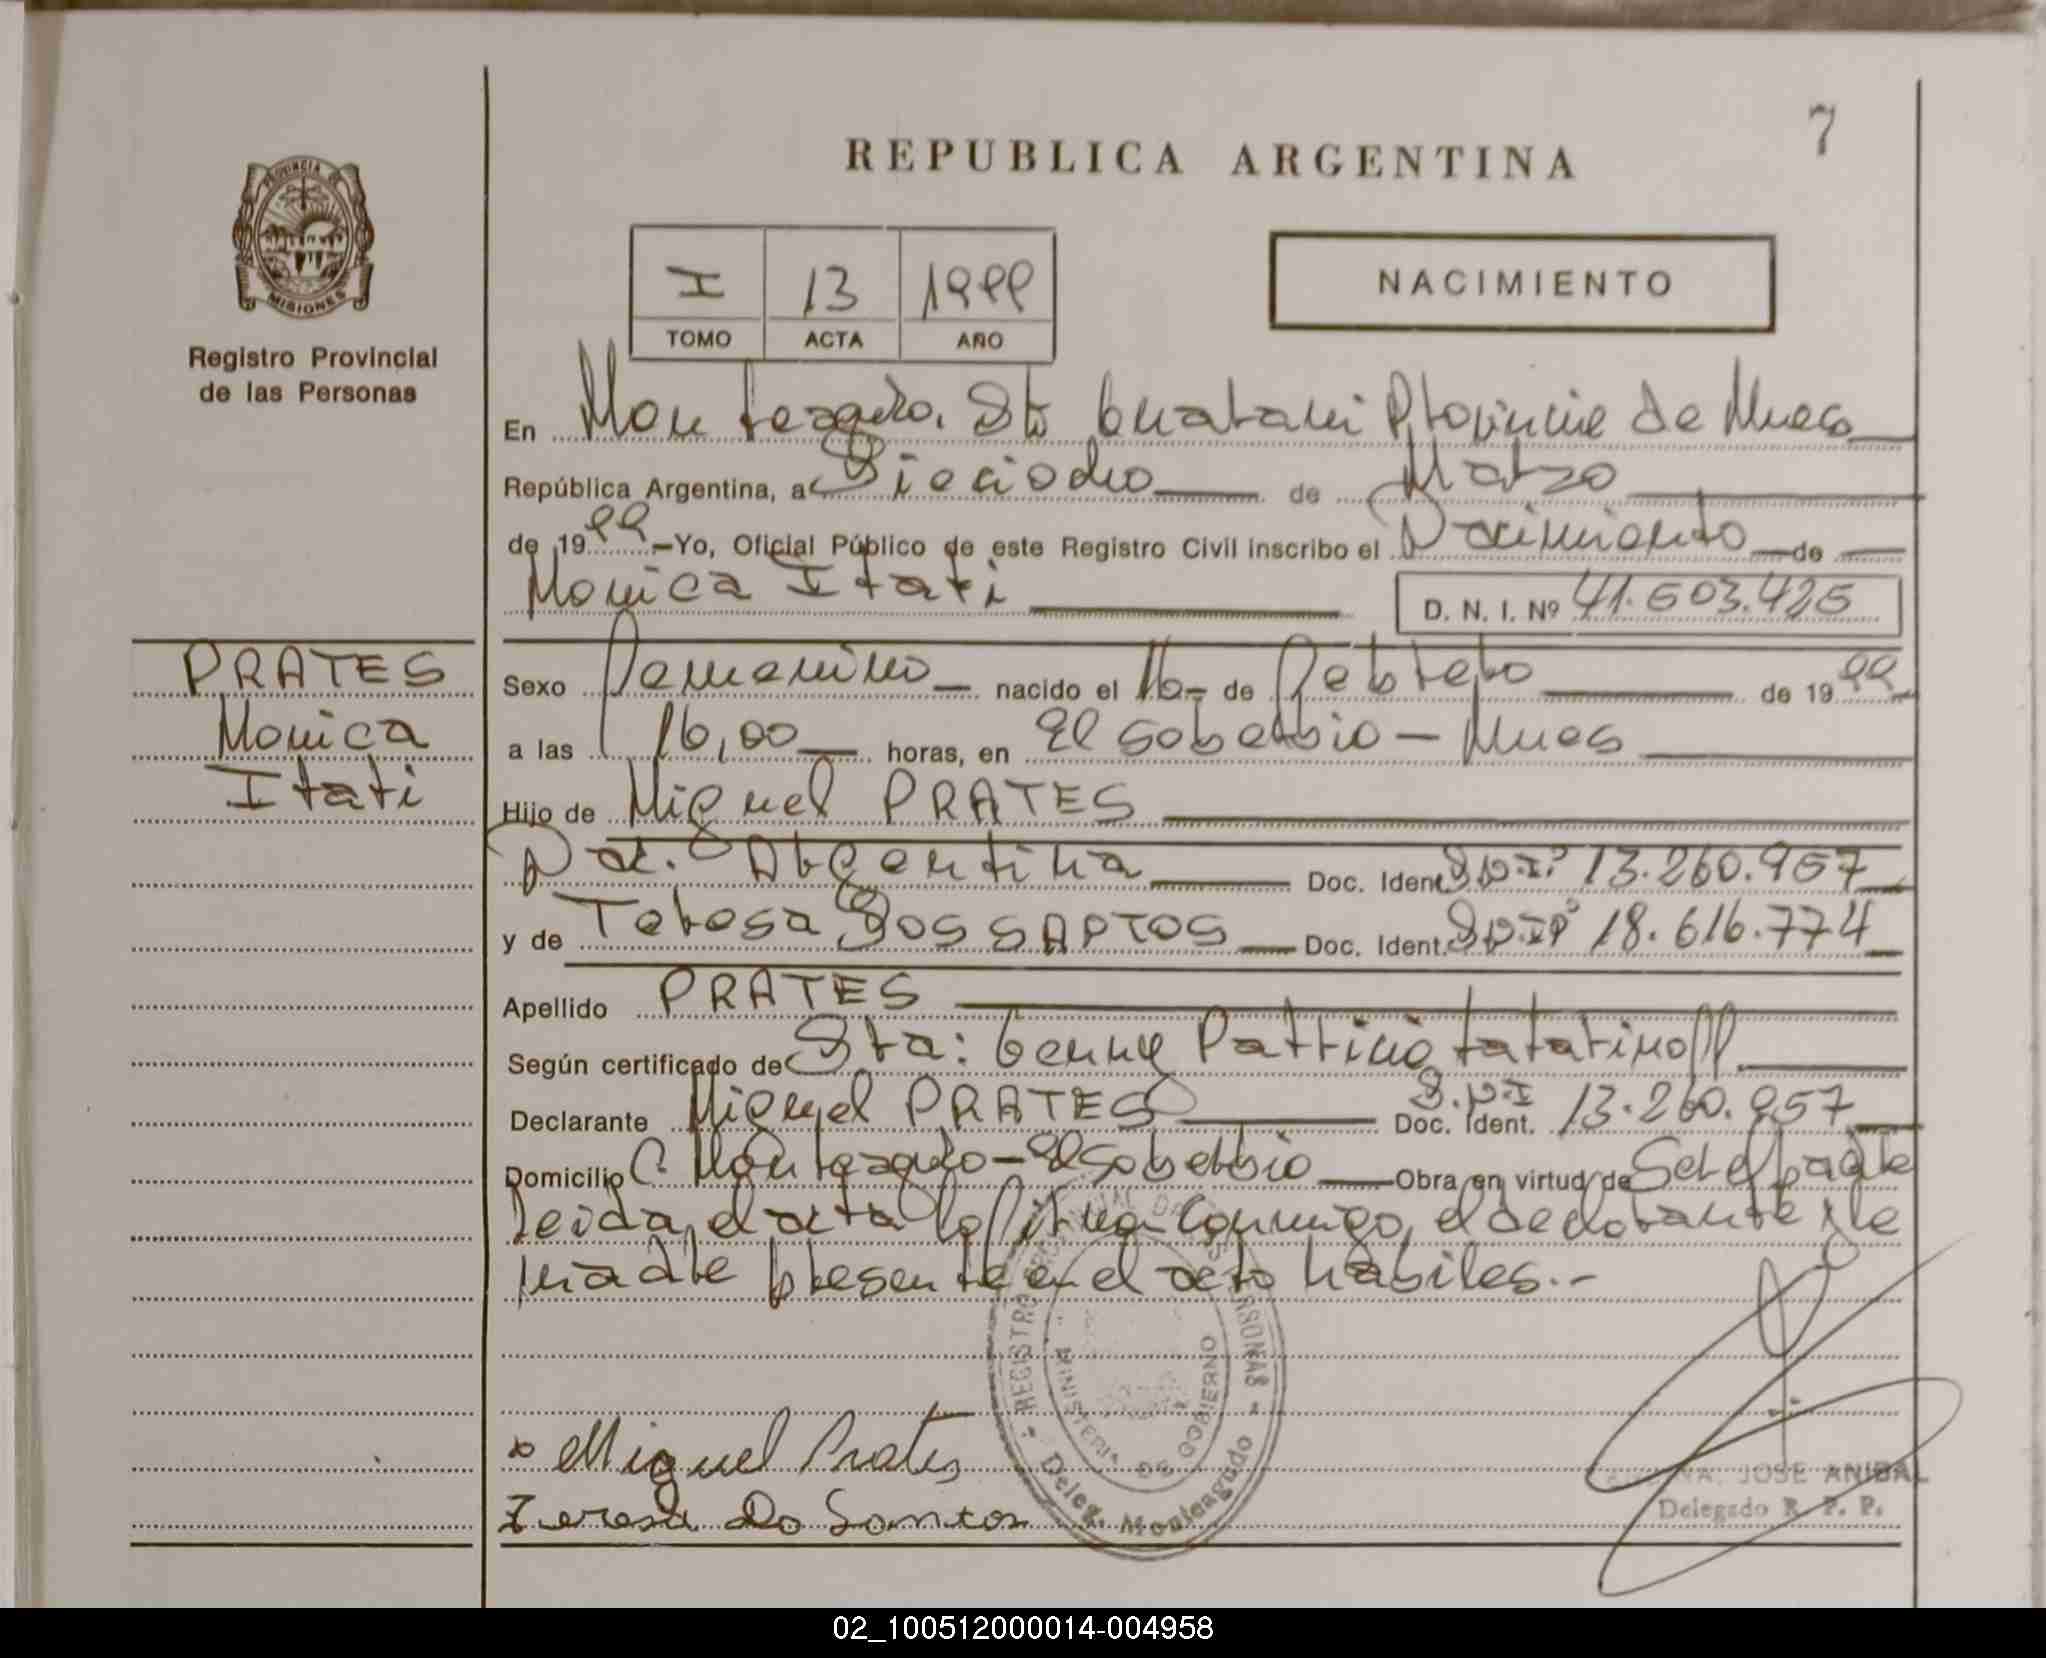 7
REPUBLICA ARGENTINA
PROVINCIA DE
MISIONES
Registro Provincial
de las Personas
I 13 1999
TOMO ACTA AÑO
NACIMIENTO
En Monteagudo. Dto Guarani Provincia de Mnes
República Argentina, a Dieciocho de Marzo
de 1999 Yo, Oficial Público de este Registro Civil inscribo el Nacimiento de
Monica Itati
D. N. I. Nº 41.503.425
PRATES
Monica
Itati
Sexo Femenino nacido el 16 de Febrero de 1999
a las 16,00 horas, en El Soberbio - Mnes
Hijo de Miguel PRATES
Nac. Argentina Doc. Ident. D.N.I. 13.260.957
y de Teresa DOS SANTOS Doc. Ident. D.N.I. 18.616.774
Apellido PRATES
Según certificado de Sta: Genny Patricia
Declarante Miguel PRATES D.N.I Doc. Ident. 13.260.957
Domicilio C. Monteagudo - El Soberbio Obra en virtud de Ser el padre
leida el acta la firma conmigo, el declarante y la
madre presente en el acto habiles.-
REGISTRO PROVINCIAL DE LAS PERSONAS
MINISTERIO DE GOBIERNO
Deleg. Monteagudo
Miguel Prates
Teresa Do Santos
JOSE ANIBAL
Delegado R. P. P.
02_100512000014-004958